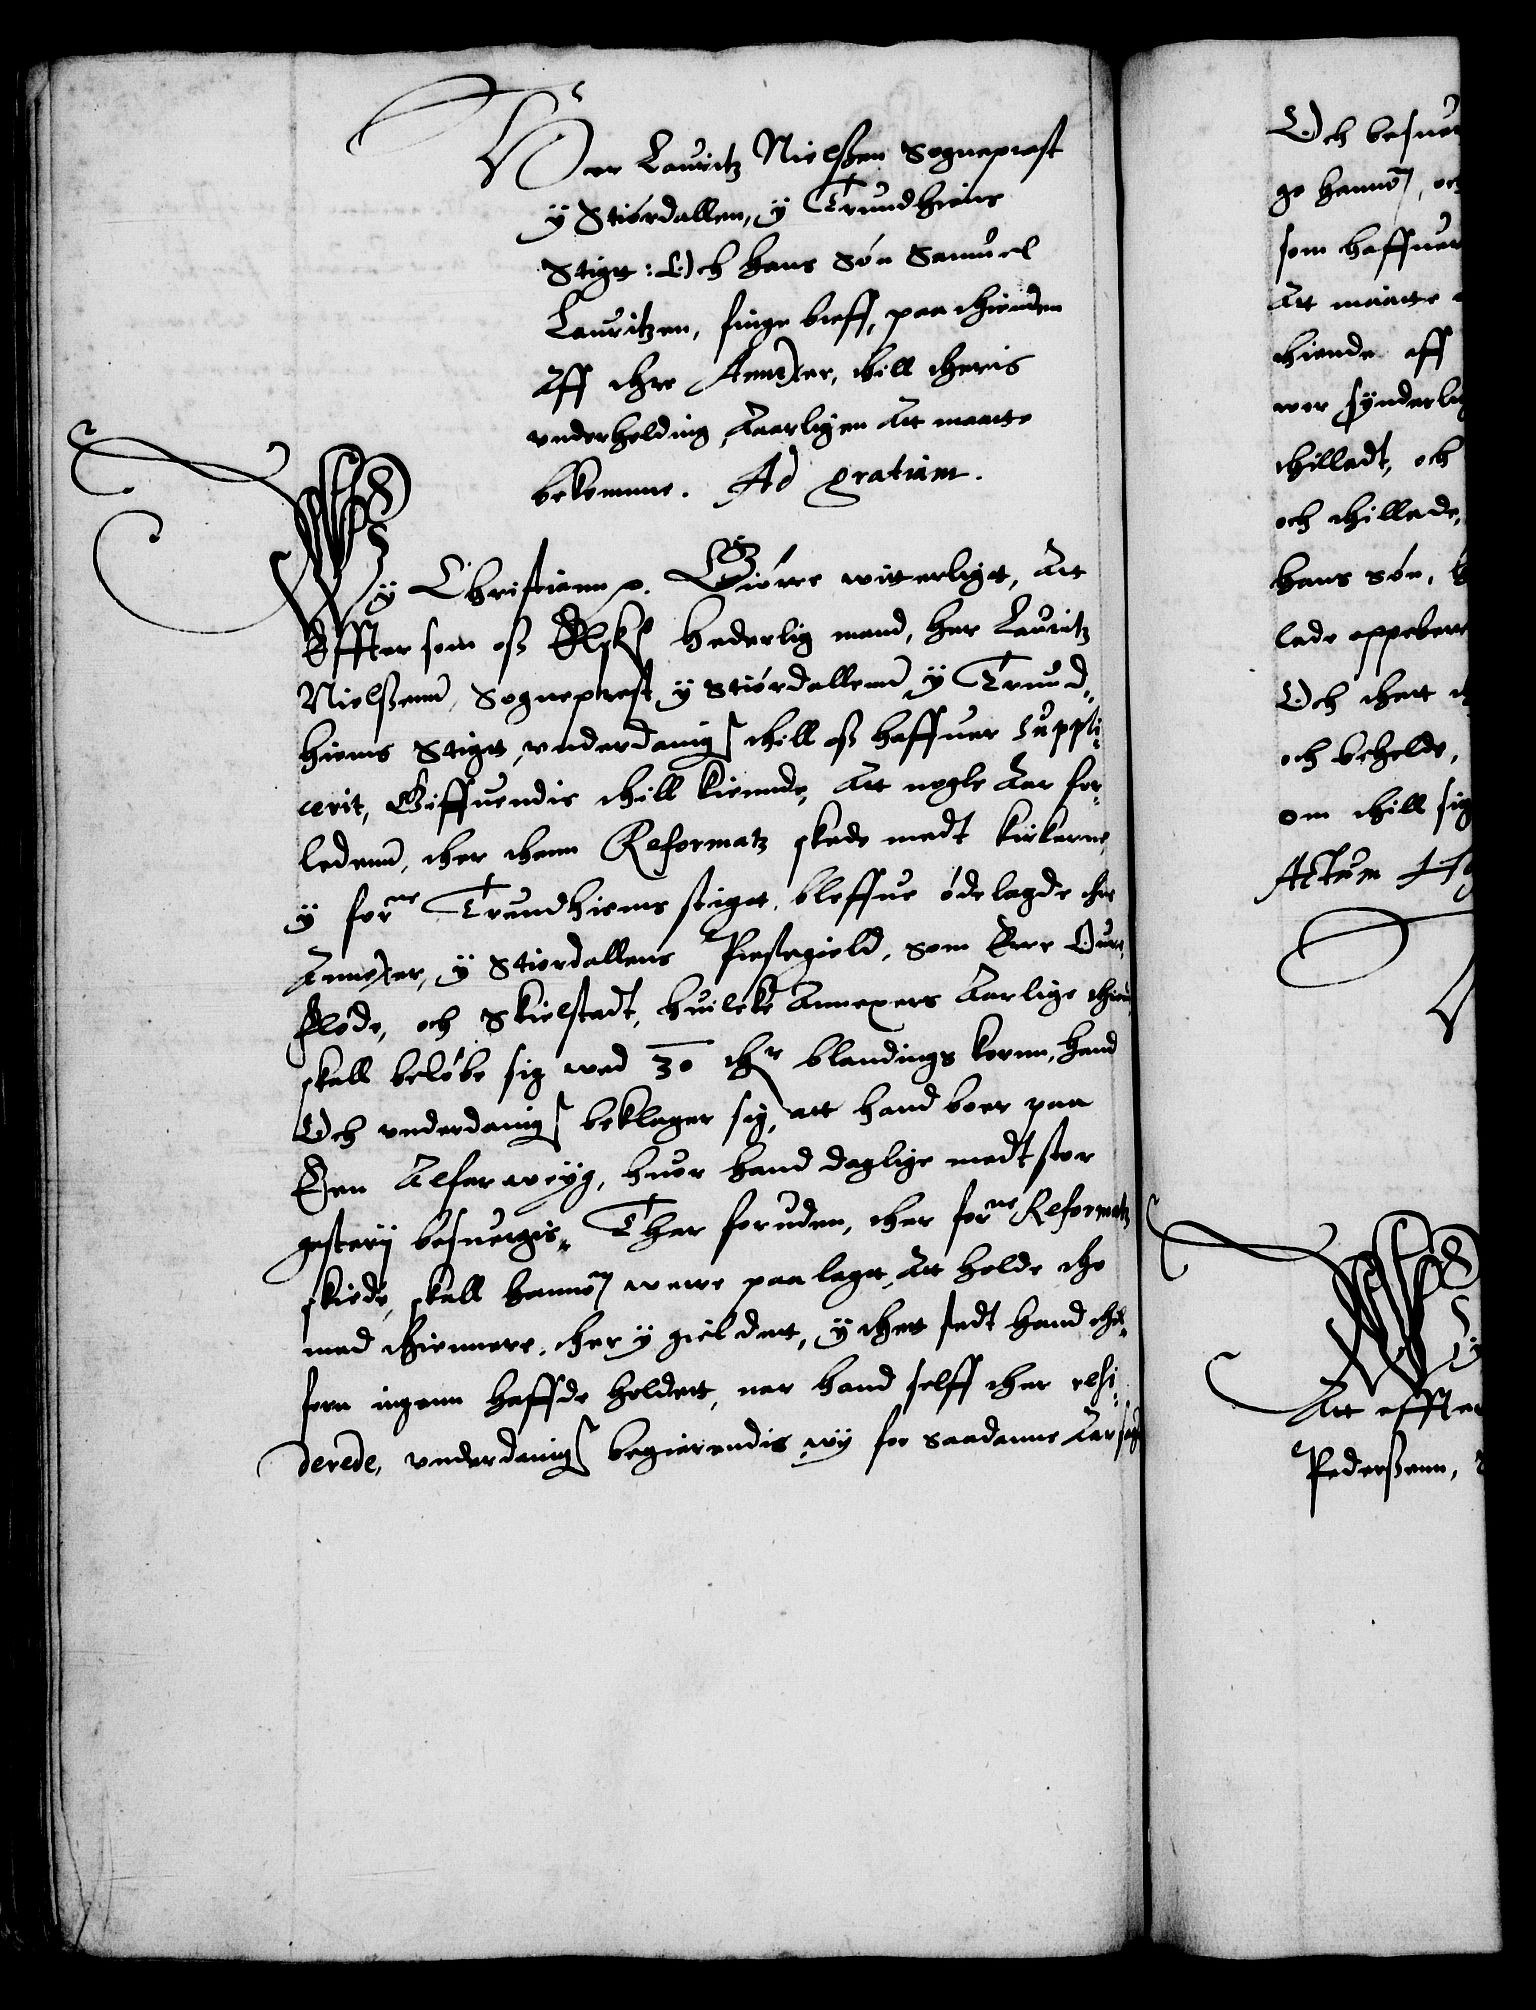 Her Lauritz Nielßen Sogneprest
y Stiørdallen, y Trundhiems
Stigt: Och hans Søn Samuel
Lauritzen, finge breff, paa thienden
Aff thre Annexer, thill theris
vnderholding Aarligen Att maatte
bekomme. Ad gratiam.
Wy Christiann p. Giørre witterligt, Att
Effter som oß Elsk: hederlig mand, her Lauritz
Nielßenn, Sogneprest y Stiørdallenn y Trund„
hiems Stigt, vnderdanig: thill oß haffuer Suppli„
cerit, Giffuendis thill kiennde, Att nogle Aar for„
ledenn, ther thenn Reformatz skede medt kirkerne,
y forne Trundhiems stigt, bleffue ødelagde thre
Annexer, y Stiordallens Prestegield, som Erre
Flode, och Skielstadt, huilcke Annexers Aarlige
skall beløbe sig wed 30 thr blandings kornn, hand
Och vnderdanig: beklager sig, att hand boer paa
Een Alfarweyg, huor hand daglige medt stor
gesterij besuergis„ Ther foruden, ther forne Reformatz
skiede, skall hannom were paa lagt, Att holde tho
med thiennere, ther y gieldett, y thett stedt hand
forn ingenn haffde holdett, nar hand selff ther resi„
derede, vnderdanig: begierendis wy for saadanne

Och besuer
ge hannom, och
som haffuer
Att maatte
thiende aff
wor synderlig
thilladt, och
och thillade,
hans søn,
lade oppeberre
Och thett
och beholde,
om thill sig
Actum
Wy
Att effter
Pederßenn,